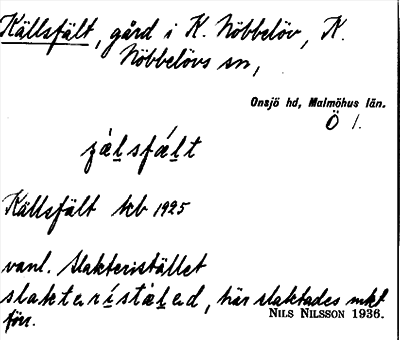 Källsfält, gård i K. Nöbbelöv, K.
Nöbbelövs sn,
Onsjö hd, Malmöhus län.
Ö 1.
Källsfält kb 1925
vanl. Slakteristället
här slaktades mkt
förr.
NILS NILSSON 1936.